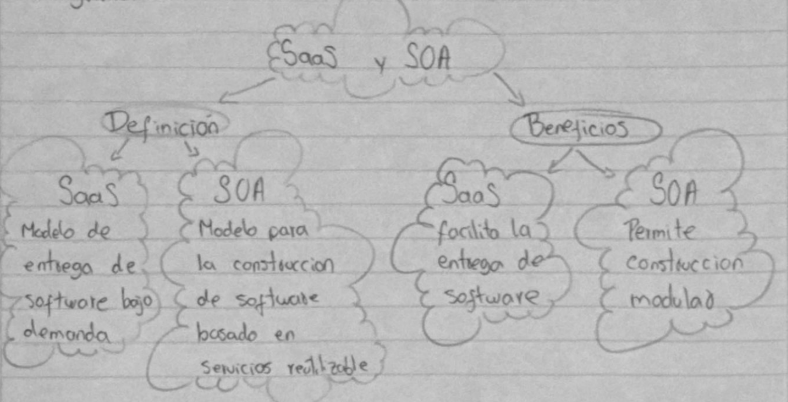 SaaS y SOA
Definición
Beneficios
SaaS
Modelo de
entrega de
software bajo
demanda
SOA
Modelo para
la construccion
de software
basado en
servicios reutilizable
SaaS
facilita la
entrega de
software
SOA
Permite
construccion
modular